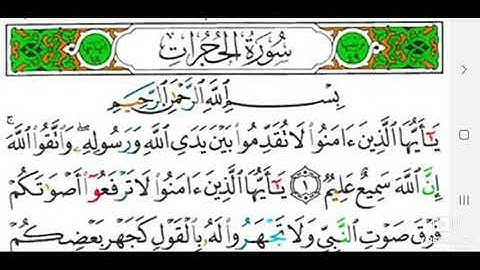 سُورَةُ الحُجُرَاتِ
بِسْمِ اللَّهِ الرَّحْمَٰنِ الرَّحِيمِ
يَٰٓأَيُّهَا الَّذِينَ ءَامَنُوا۟ لَا تُقَدِّمُوا۟ بَيْنَ يَدَىِ اللَّهِ وَرَسُولِهِۦ ۖ وَاتَّقُوا۟ اللَّهَ ۚ
إِنَّ اللَّهَ سَمِيعٌ عَلِيمٌ ١ يَٰٓأَيُّهَا الَّذِينَ ءَامَنُوا۟ لَا تَرْفَعُوٓا۟ أَصْوَٰتَكُمْ
فَوْقَ صَوْتِ النَّبِىِّ وَلَا تَجْهَرُوا۟ لَهُۥ بِالْقَوْلِ كَجَهْرِ بَعْضِكُمْ